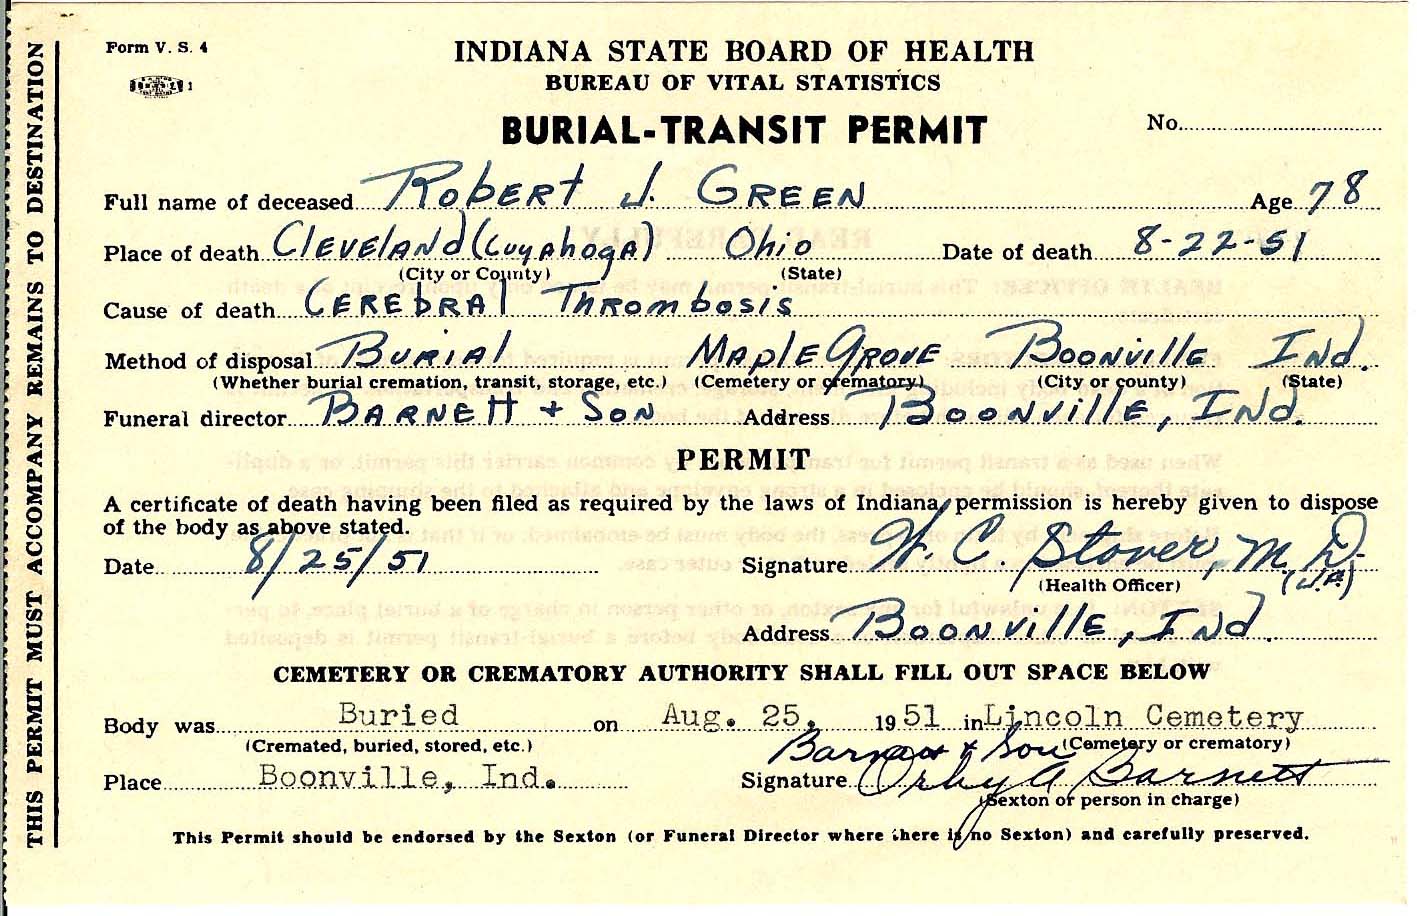 Form V. S. 4
INDIANA STATE BOARD OF HEALTH
BUREAU OF VITAL STATISTICS
BURIAL-TRANSIT PERMIT
No.
Full name of deceased Robert J. Green Age 78
Place of death Cleveland (Cuyahoga) Ohio Date of death 8-22-51
(City or County) (State)
Cause of death Cerebral Thrombosis
Method of disposal Burial Maple Grove Boonville Ind.
(Whether burial cremation, transit, storage, etc.) (Cemetery or crematory) (City or county) (State)
Funeral director Barnett + Son Address Boonville, Ind.
PERMIT
A certificate of death having been filed as required by the laws of Indiana, permission is hereby given to dispose
of the body as above stated.
Date 8/25/51 Signature W. C. Stover, M.D.
(Health Officer)
Address Boonville, Ind.
CEMETERY OR CREMATORY AUTHORITY SHALL FILL OUT SPACE BELOW
Body was Buried on Aug. 25, 1951 in Lincoln Cemetery
(Cremated, buried, stored, etc.) Barnett & Son (Cemetery or crematory)
Place Boonville, Ind. Signature Orby A Barnett
(Sexton or person in charge)
This Permit should be endorsed by the Sexton (or Funeral Director where there is no Sexton) and carefully preserved.
THIS PERMIT MUST ACCOMPANY REMAINS TO DESTINATION